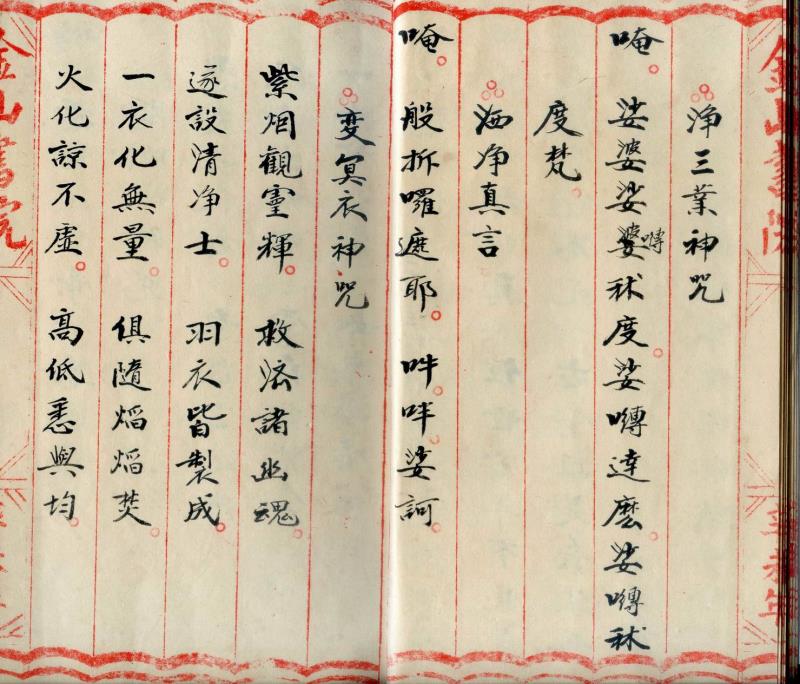 淨三業神咒
唵。娑婆娑婆嚩秫度娑嚩達麼娑嚩秫
度梵。
洒净真言
唵。般抐囉遮耶。吽吽娑訶。
变冥衣神咒
紫烟觀靈輝。救濟諸幽魂。
遂設清净士。羽衣皆製成。
一衣化無量。俱隨熖熖焚。
火化諒不虛。高低悉與均。
金山書院